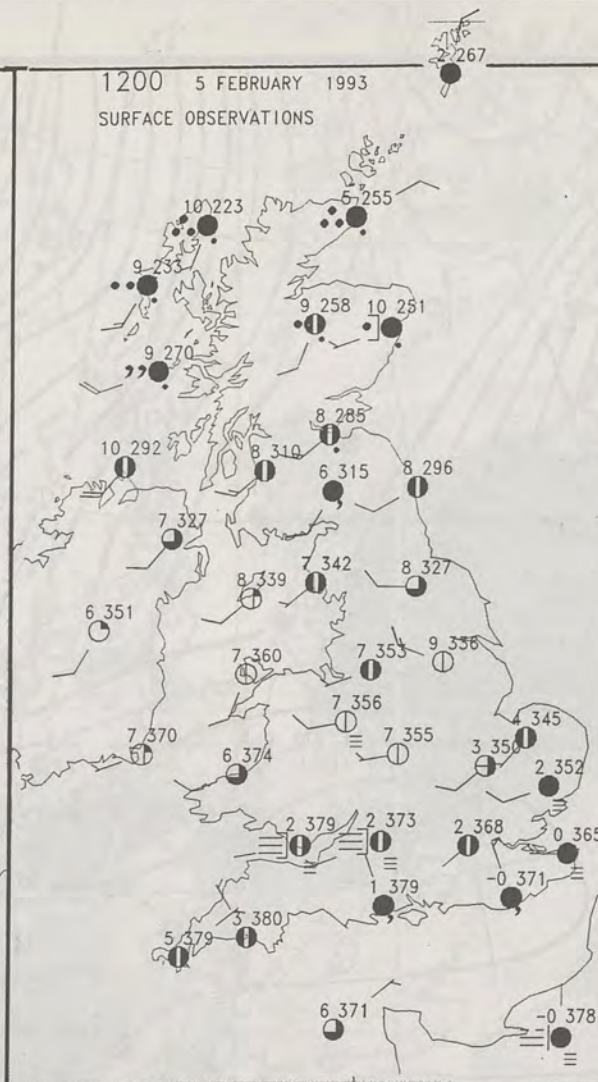 2 267
1200 5 FEBRUARY 1993
SURFACE OBSERVATIONS
10 223
5 255
9 233
9 258
10 251
9 270
8 285
10 292
8 310
6 315
8 296
7 327
7 342
8 327
8 339
6 351
9 336
7 360
7 353
7 356
7 370
7 355
4 345
6 374
3 350
2 352
2 379
2 373
2 368
0 365
1 379
-0 371
3 380
5 379
6 371
-0 378